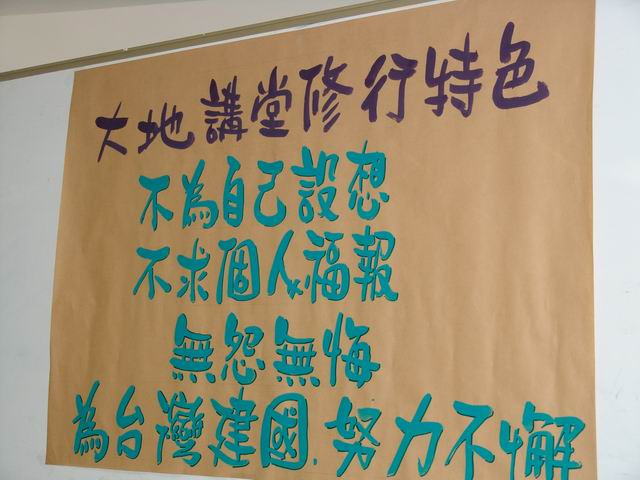 大地講堂修行特色
不為自己設想
不求個人福報
無怨無悔
為台灣建國.努力不懈